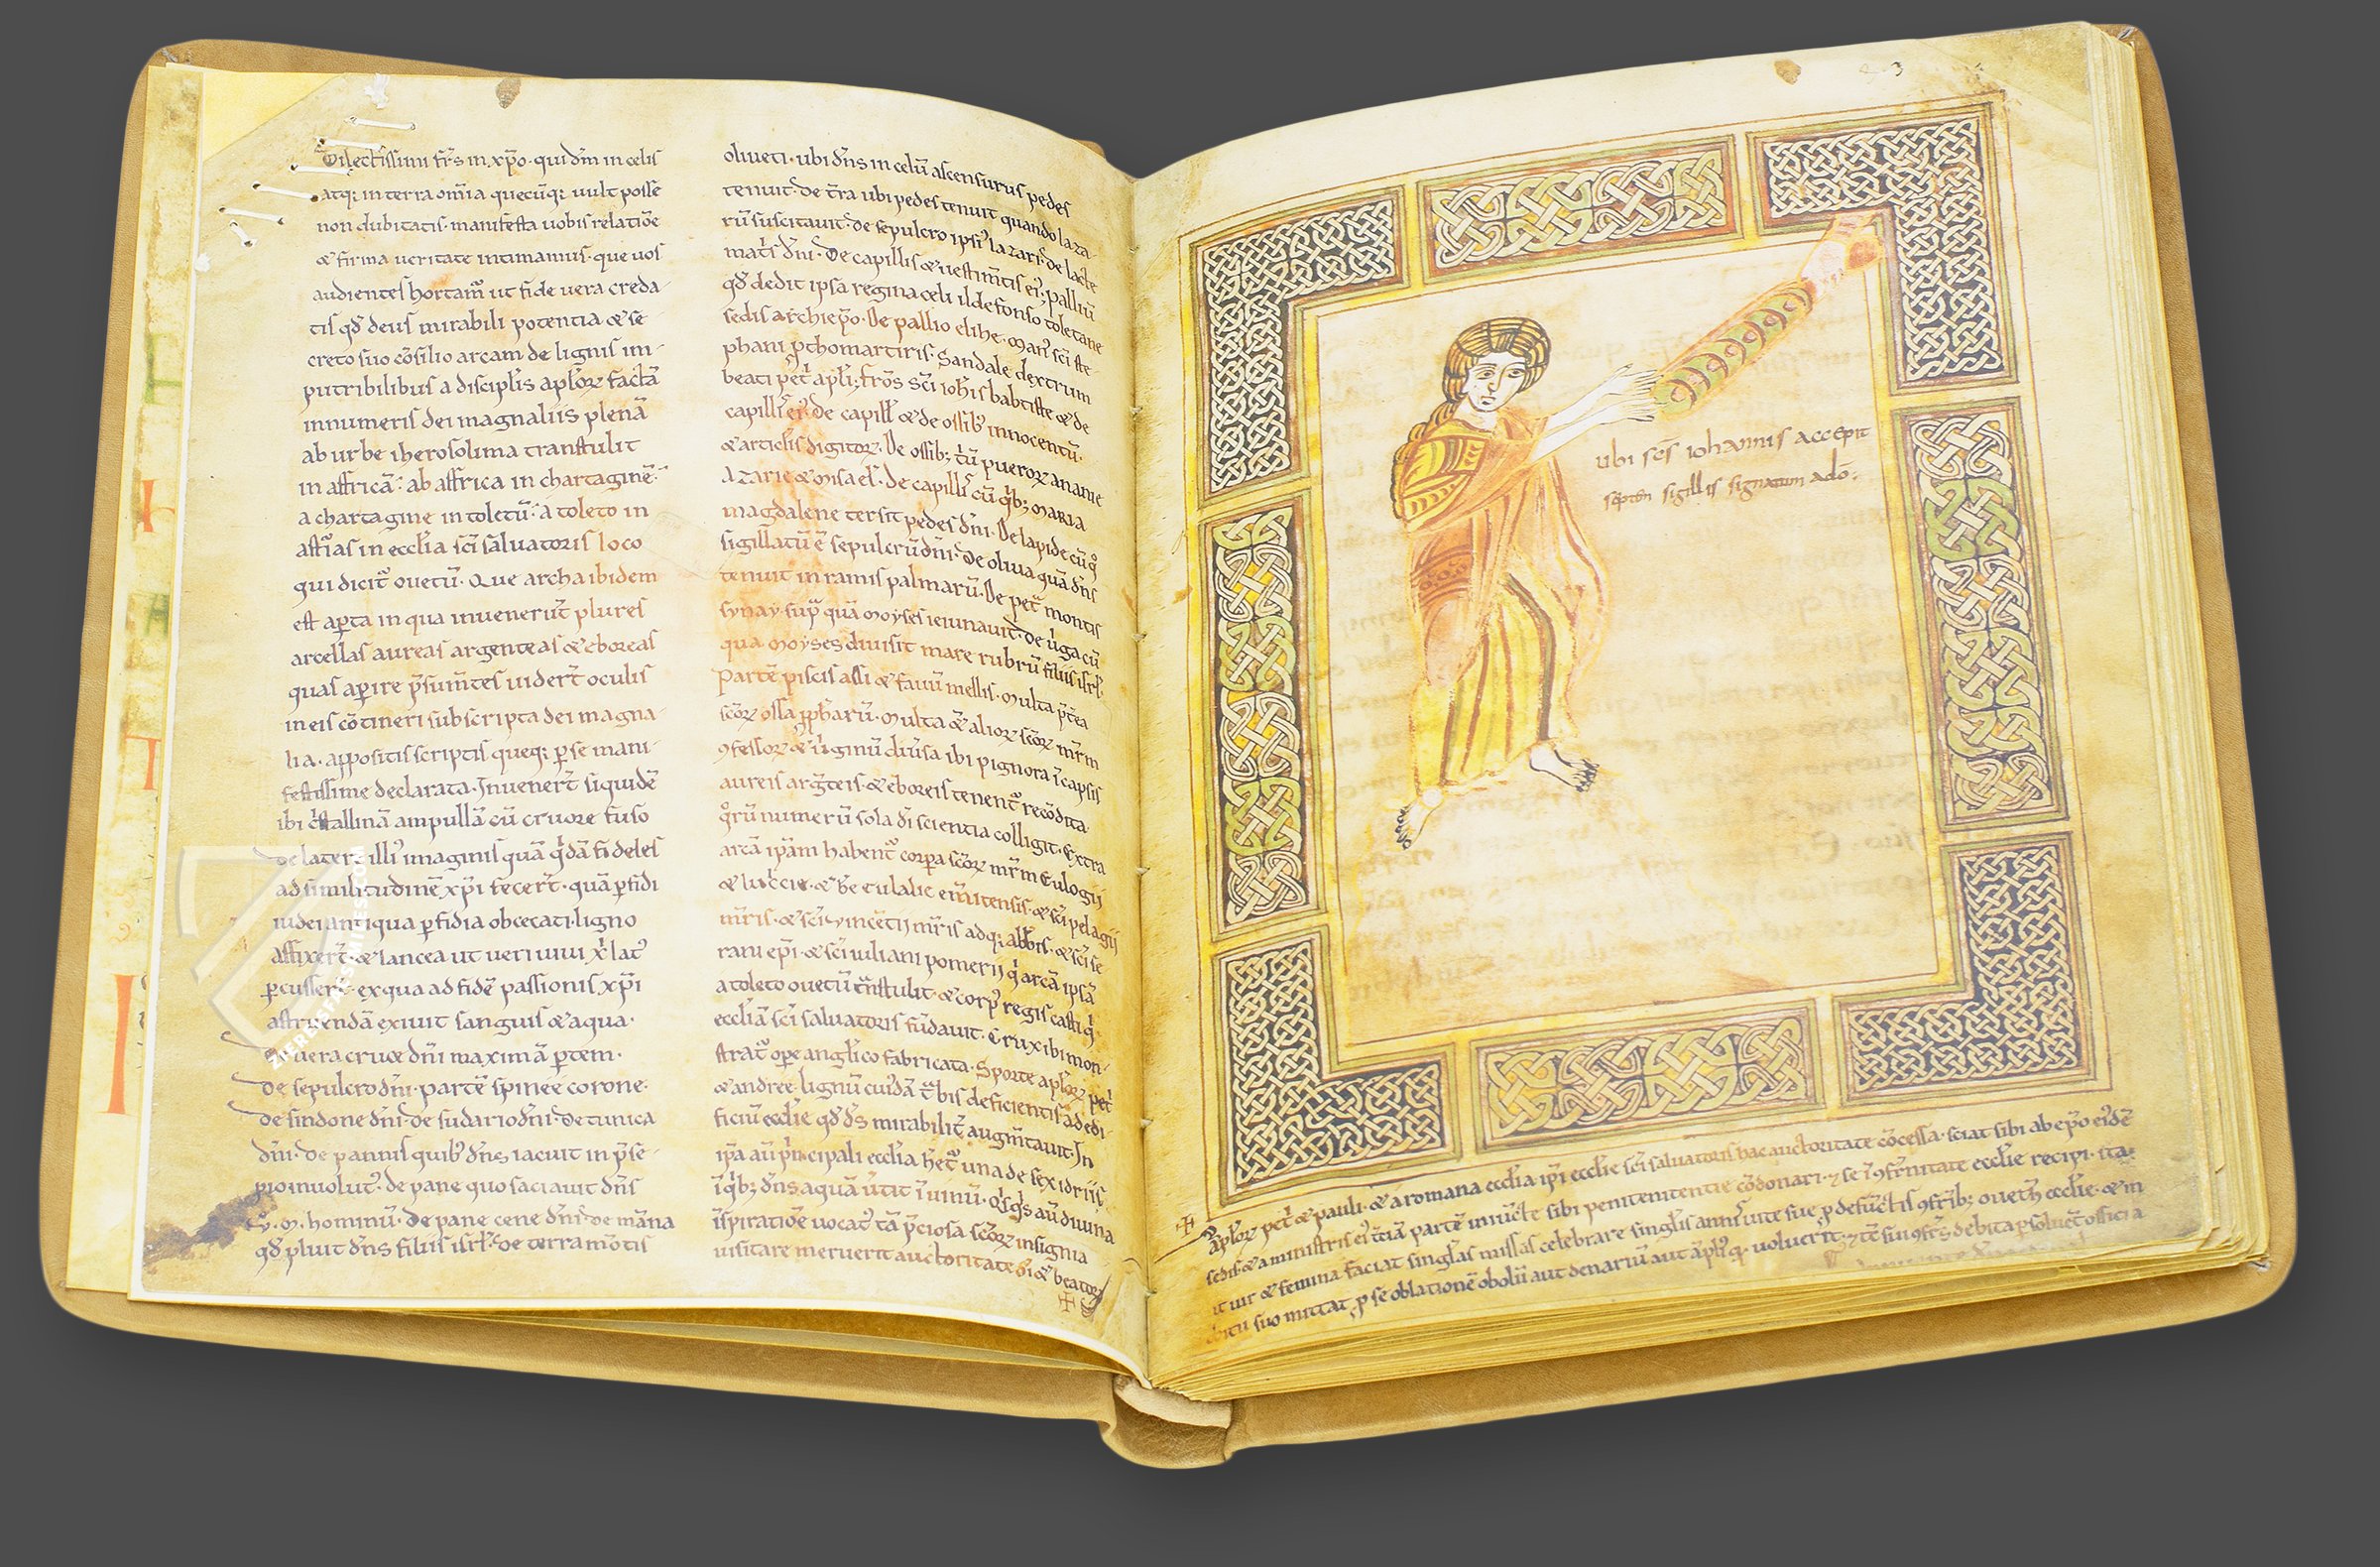 Dilectissimi fr̄s in xp̄o · qui dm̄ in celis
atq; in terra om̄ia quecūq; uult posse
non dubitatis · manifesta uobis relatiōe
& firma ueritate intimamus · que uos
audientes hortam̄ ut fide uera creda-
tis qđ deus mirabili potentia & se-
creto suo cōsilio arcam de lignis im-
putribilibus a discipl̄is apl̄oꝝ factā
innumeris dei magnaliis plenā
ab urbe iherosolima transtulit
in affricā · ab affrica in chartaginē ·
a chartagine in toletū · a toleto in
astl̄ias in eccl̄ia sc̄i saluatoris loco
qui dicit̄ ouetū · Que archa ibidem
est aꝑta in qua inuenerūt plures
arcellas aureas argenteas & eboreas
quas aꝑire p̄sum̄tes uider̄t oculis
in eis cōtineri subscripta dei magna-
lia · appositis scriptis queq; ꝑ se mani-
festissime declarata · Inuener̄t siquidē
ibi c̄stallinā ampullā cū cruore fuso
de latere illi᾽ imaginis quā q̇dā fideles
ad similitudinē xp̄i fecer̄t · quā ꝑfidi
iudei antiqua ꝑfidia obcecati · ligno
affixer̄t · & lancea ut ueri uiui x̄i lat᾽
ꝑcusser̄t · ex qua ad fidē passionis xp̄i
astruendā exiuit sanguis & aqua ·
De uera cruce dn̄i maximā ꝑtem ·
de sepulcro dn̄i · partē spinee corone ·
de sindone dn̄i · de sudario dn̄i · de tunica
dn̄i · de pannis quib᾽ dn̄s iacuit in p̄se-
pio inuolut᾽ · de pane quo saciauit dn̄s
hominū · de pane cene dn̄i · de māna
qđ pluit dn̄s filiis isrl̄ · de terra mōtis
oliueti · ubi dn̄s in celū ascensurus pedes
tenuit · de t̄ra ubi pedes tenuit quando laza-
rū suscitauit · de sepulcro ipsi᾽ lazari · de lacte
mat̄s dn̄i · De capillis & uestim̄tis ei᾽ · palliū
qđ dedit ipsa regina celi ildefonso toletane
sedis archiep̄o · De pallio elihe · Man᾽ sc̄i ste-
phani ꝓthomartiris · Sandale dextrum
beati pet̄ apl̄i · frōs sc̄i ioh̄is babtiste & de
capill᾽ ei᾽ · De capill᾽ & de ossib᾽ innocentū ·
& articl̄is digitoꝝ · De ossib; t̄ū pueroꝝ ananie
azarie & misael · De capill᾽ cū q̇b; maria
magdalene tersit pedes dn̄i · De lapide cū q̊
sigillatū ē sepulcrū dn̄i · De oliua quā dn̄s
tenuit in ramis palmarū · De pet̄ montis
synay · supͣ quā moyses ieiunauit · de ůga cū
qua moyses diuisit mare rubrū filiis isrl̄ ·
Partē piscis assi & fauū mellis · Multa p̄t̄ea
sc̄oꝝ ossa ꝓph̄arū · Multa & alioꝝ sc̄oꝝ mr̄m
ꝯfessoꝝ & ůginū diůsa ibi pignora ī capsis
aureis arḡteis · & eboreis tenent᾽ recōdita ·
q̊rū numerū sola dī scientia colligit · Extra
arcā ip̄am habent᾽ corꝑa sc̄oꝝ mr̄m Eulogij
& lucr̄cie · & b̄e eulalie em̄itensis · & sc̄i pelagij
mr̄ris · & sc̄i uincētij mr̄ris adq; abb̄is · & sc̄i se
rani ep̄i · & sc̄i iuliani pomerij q̇ arcā ipsā
a toleto ouetū t̄nstulit · & corp᾽ regis casti q̇
eccl̄iā sc̄i saluatoris fūdauit · Crux ibi mon-
strat᾽ oꝑe anglico fabricata · Sporte apl̄oꝝ pet̄
& andree · lignū cui᾽dā t̄bis deficientis ad edi-
ficiū eccl̄ie qđ dn̄s mirabilit̄ augm̄tauit · In
ip̄a aū p̄ncipali eccl̄ia h̄et᾽ una de sex idriis
ī q̇b; dn̄s aquā ůtit ī uinū · Q̇sq̇s aū diuina
īspiratiōe uocat᾽ tā p̄ciosa sc̄oꝝ insignia
uisitare meruerit auctoritate dī & beatoꝝ
ubi sc̄s iohannis accepit
septem sigillis signatum a dō ·
apl̄oꝝ pet̄ & pauli · & a romana eccl̄ia · ip̄i eccl̄ie sc̄i saluatoris hac auctoritate cōcessa · sciat sibi ab ep̄o ei᾽dē
sedis & a ministris ei᾽ t̄ciā partē iniūcte sibi penitentie cōdonari · & se ī ꝯfr̄nitate eccl̄ie recipi · ita
ut uir & femina faciat singlās missas celebrare singl̄is annis uite sue ꝓ defūctis ꝯfr̄ib; ouetn̄ eccl̄ie · & in
obitu suo mittat ꝓ se oblationē obolū aut denariū aut āpli᾽ q̇ · uoluer̄it · & tē sui ꝯfr̄s debita ꝑsoluēt officia
ZIEREISFACSIMILES.COM